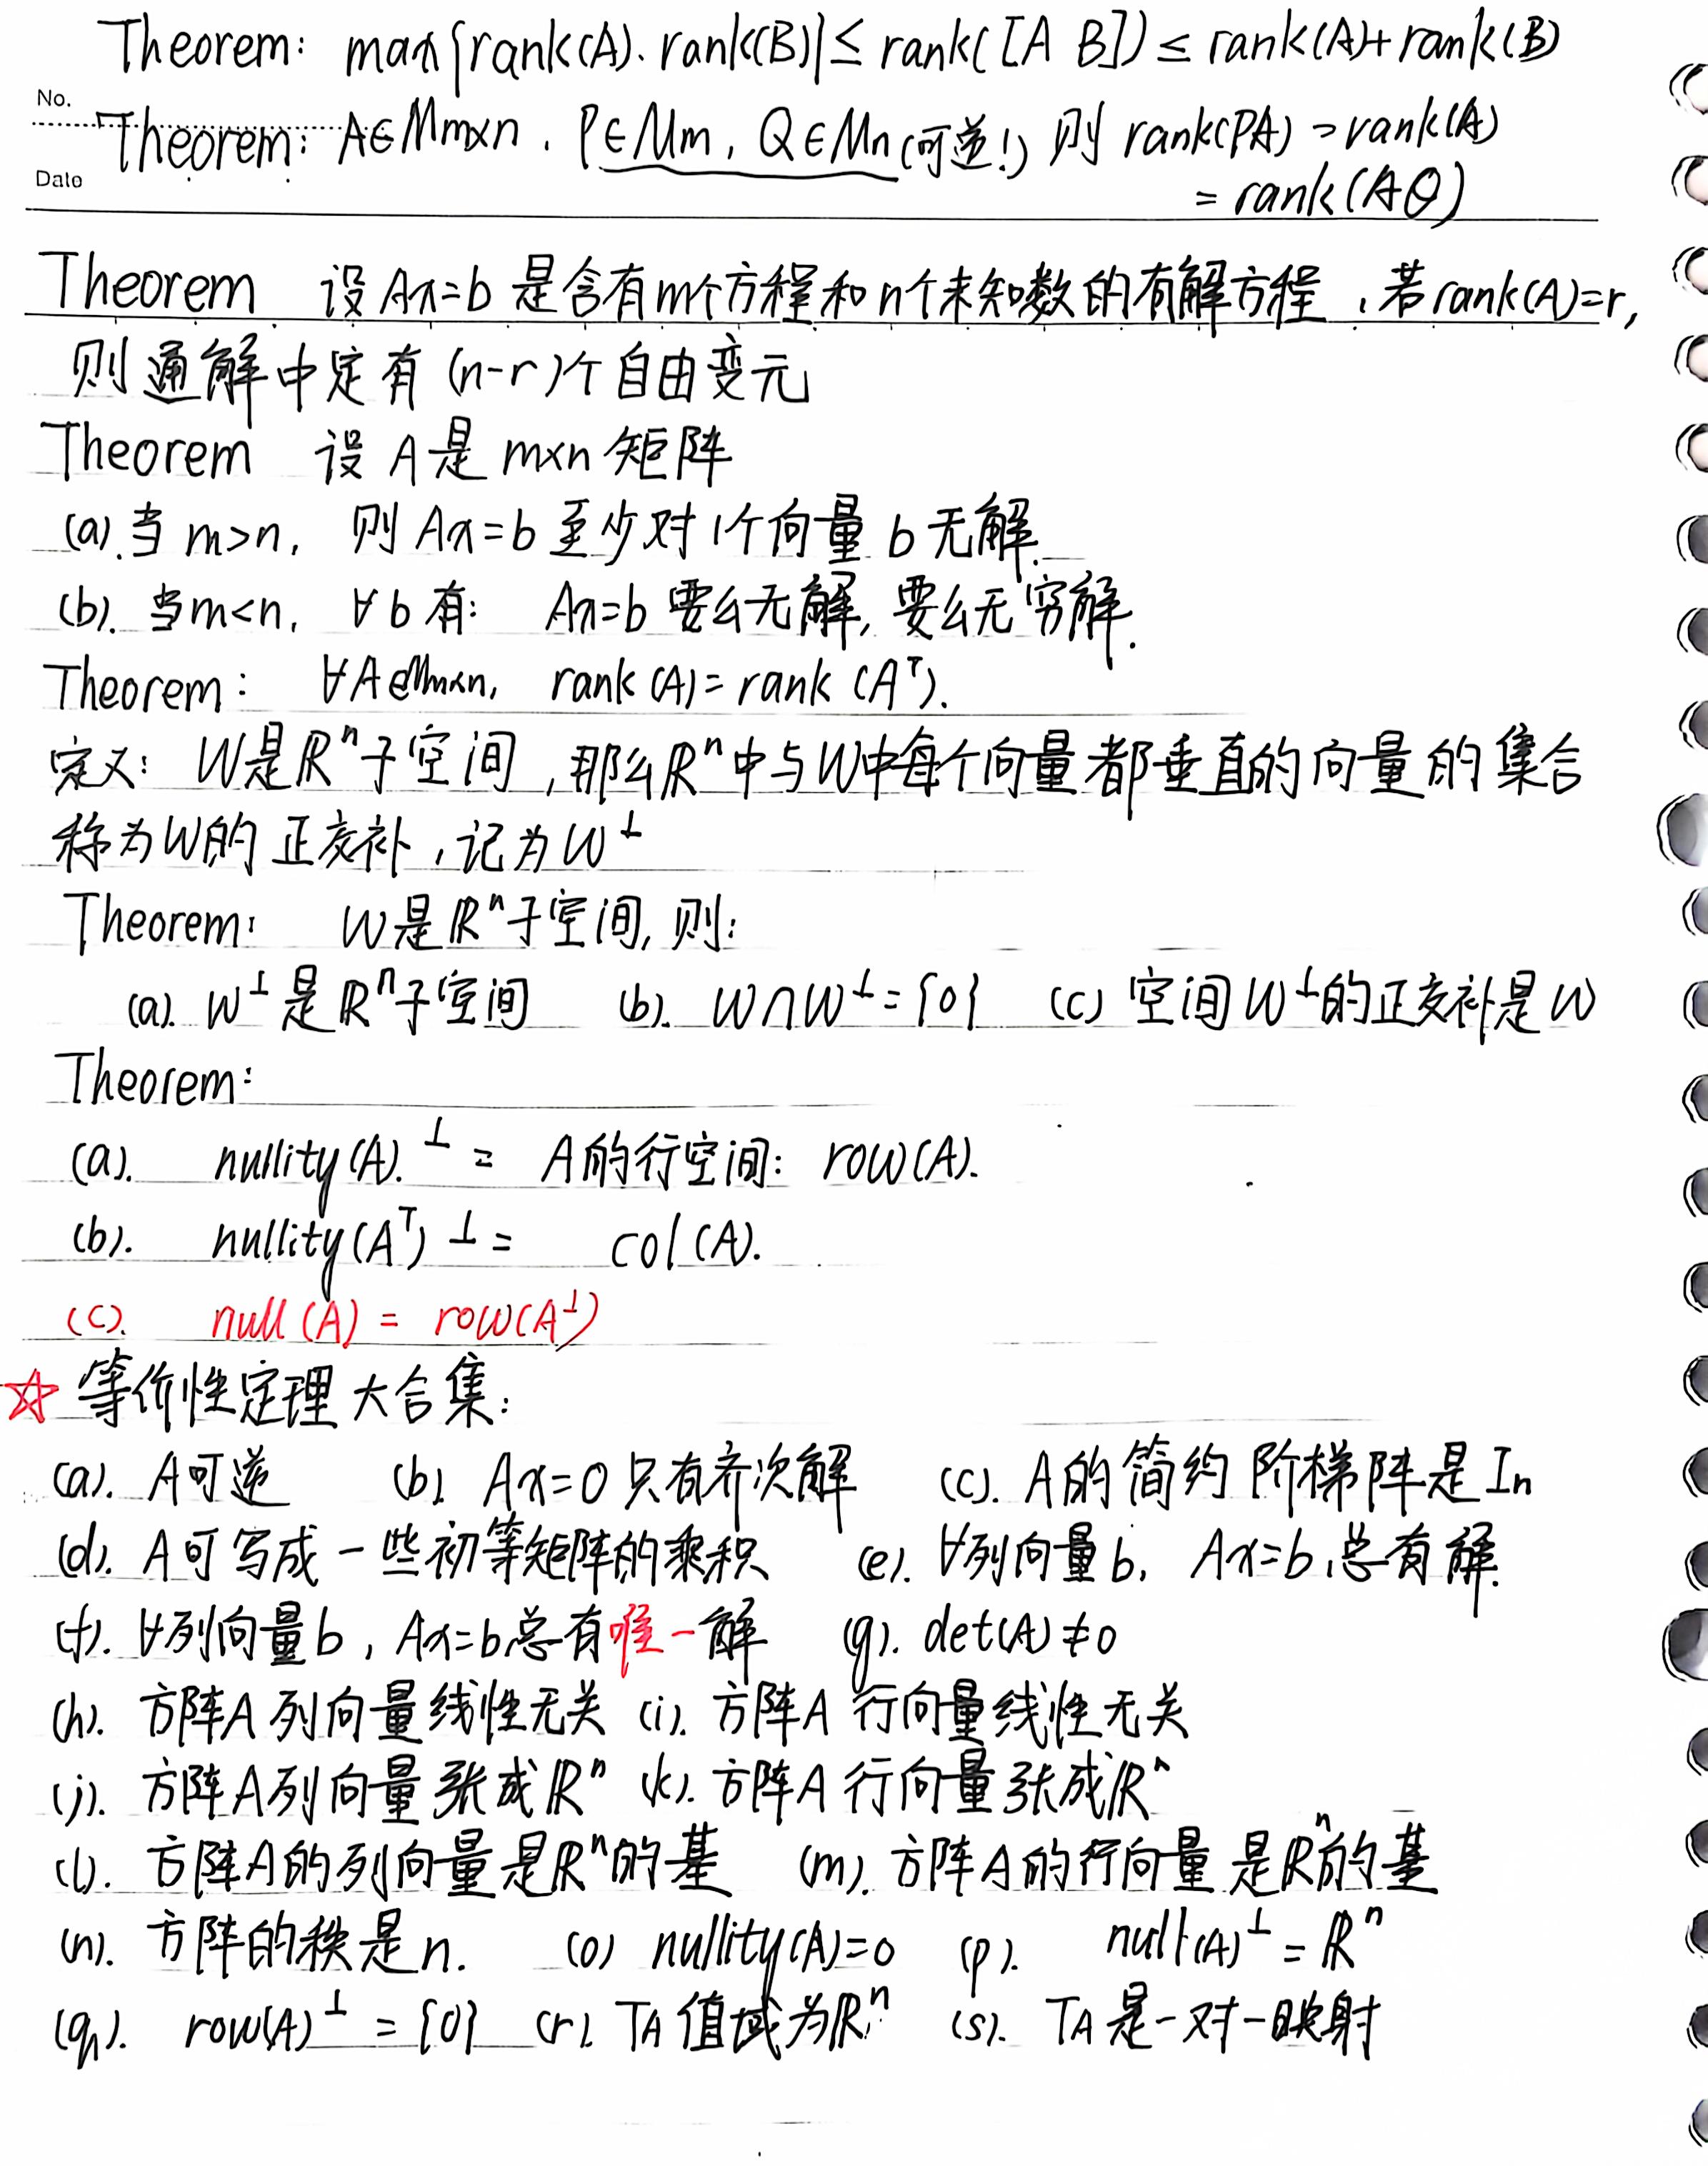 Theorem: max{rank(A), rank(B)} ≤ rank([A B]) ≤ rank(A)+rank(B)
No.
Theorem: A∈Mm×n, P∈Mm, Q∈Mn(可逆!) 则 rank(PA) = rank(A)
Date
= rank(AQ)
Theorem 设 Ax=b 是含有m个方程和n个未知数的有解方程,若rank(A)=r,
则通解中定有 (n-r)个自由变元
Theorem 设 A是 m×n 矩阵
(a). 当 m>n, 则 Ax=b 至少对1个向量 b 无解.
(b). 当m<n, ∀b 有: Ax=b 要么无解, 要么无穷解.
Theorem: ∀A∈Mm×n, rank(A)=rank(Aᵀ).
定义: W是ℝⁿ子空间,那么ℝⁿ中与W中每个向量都垂直的向量的集合
称为W的正交补,记为W⊥
Theorem: W是ℝⁿ子空间, 则:
(a). W⊥是ℝⁿ子空间 (b). W∩W⊥={0} (c) 空间W⊥的正交补是W
Theorem:
(a). nullity(A).⊥ = A的行空间: row(A).
(b). nullity(Aᵀ)⊥ = col(A).
(c). null(A) = row(A⊥)
☆ 等价性定理大合集:
(a). A可逆 (b). Ax=0只有齐次解 (c). A的简约阶梯阵是In
(d). A可写成一些初等矩阵的乘积 (e). ∀列向量b, Ax=b总有解.
(f). ∀列向量b, Ax=b总有唯一解 (g). det(A)≠0
(h). 方阵A列向量线性无关 (i). 方阵A行向量线性无关
(j). 方阵A列向量张成ℝⁿ (k). 方阵A行向量张成ℝⁿ
(l). 方阵A的列向量是ℝⁿ的基 (m). 方阵A的行向量是ℝⁿ的基
(n). 方阵的秩是n. (o) nullity(A)=0 (p). null(A)⊥=ℝⁿ
(q). row(A)⊥={0} (r). TA值域为ℝⁿ (s). TA是一对一映射